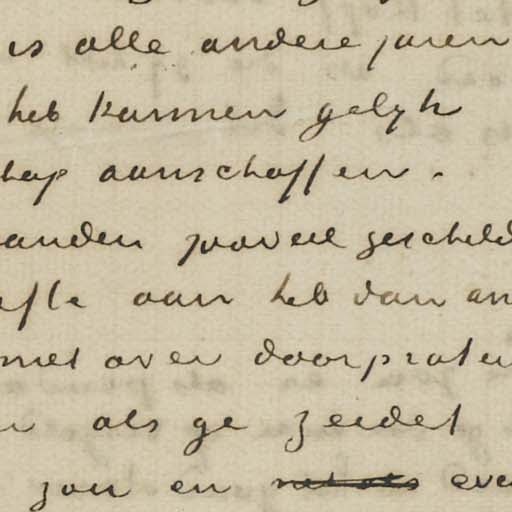 is alle andere jaren
heb kunnen gelyk
schap aanschaffen.
aanden zooveel geschild
efte aan heb dan an
met over doorpraten
als ge zeidet
zou en even